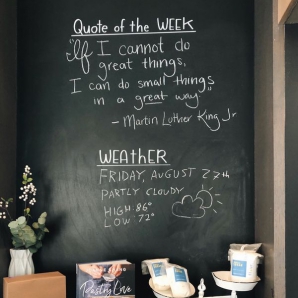 Quote of the WEEK
"If I cannot do
great things,
I can do small things
in a great way"
- Martin Luther King Jr
WEATHER
FRIDAY, AUGUST 27th
PARTLY CLOUDY
HIGH: 86°
LOW: 72°
Pastry Love